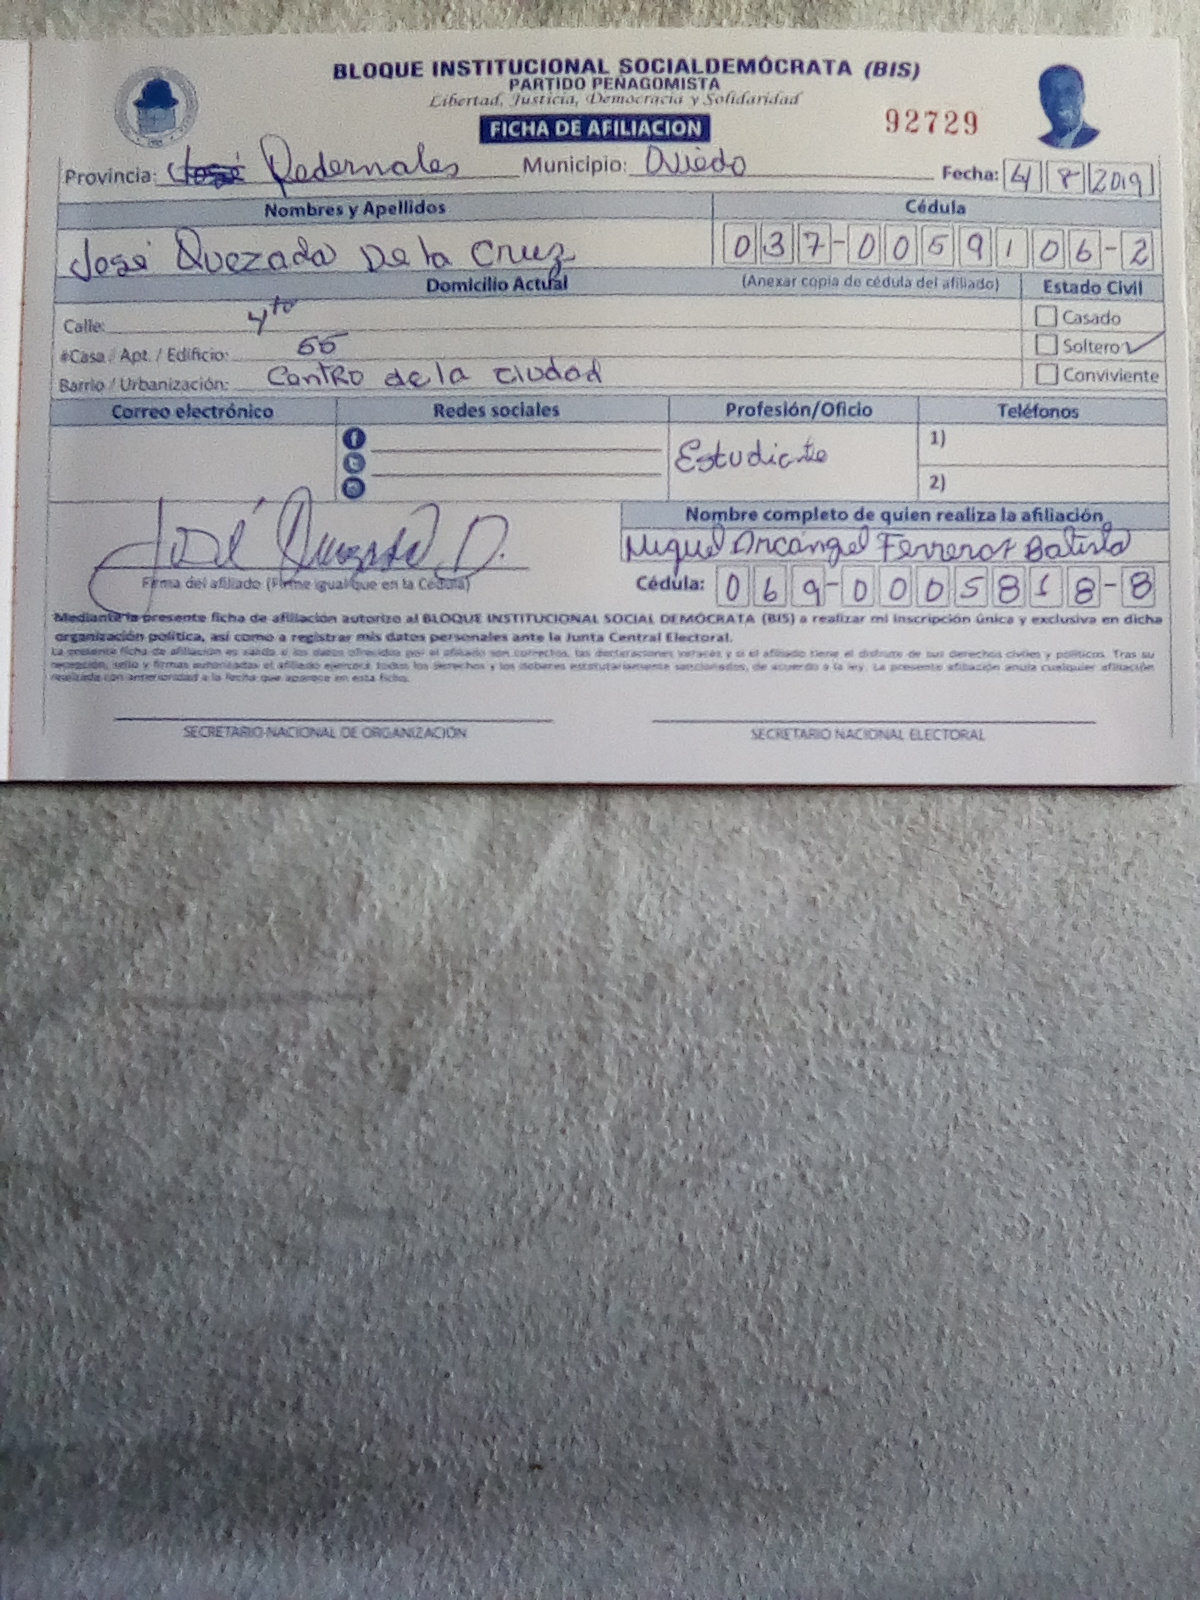 BLOQUE INSTITUCIONAL SOCIALDEMÓCRATA (BIS)
PARTIDO PEÑAGOMISTA
Libertad, Justicia, Democracia y Solidaridad
FICHA DE AFILIACION
92729
Provincia: Pedernales Municipio: Oviedo Fecha: 4 8 2019
Nombres y Apellidos Cédula
José Quezada De la Cruz 037-0059106-2
Domicilio Actual (Anexar copia de cédula del afiliado) Estado Civil
Calle: 4to Casado
#Casa / Apt. / Edificio: 55 Soltero ✓
Barrio / Urbanización: Centro de la ciudad Conviviente
Correo electrónico Redes sociales Profesión/Oficio Teléfonos
Estudiante
1)
2)
José Quezada D.
Firma del afiliado (Firme igual que en la Cédula)
Nombre completo de quien realiza la afiliación
Miguel Arcángel Ferreras Batista
Cédula: 069-0005818-8
Mediante la presente ficha de afiliación autorizo al BLOQUE INSTITUCIONAL SOCIAL DEMÓCRATA (BIS) a realizar mi inscripción única y exclusiva en dicha
organización política, así como a registrar mis datos personales ante la Junta Central Electoral.
La presente ficha de afiliación es válida si los datos ofrecidos por el afiliado son correctos, las declaraciones veraces y si el afiliado tiene el disfrute de sus derechos civiles y políticos. Tras su
recepción, sello y firmas autorizadas el afiliado ejercerá todos los derechos y los deberes estatutariamente sancionados, de acuerdo a la ley. La presente afiliación anula cualquier afiliación
realizada con anterioridad a la fecha que aparece en esta ficha.
SECRETARIO NACIONAL DE ORGANIZACIÓN SECRETARIO NACIONAL ELECTORAL